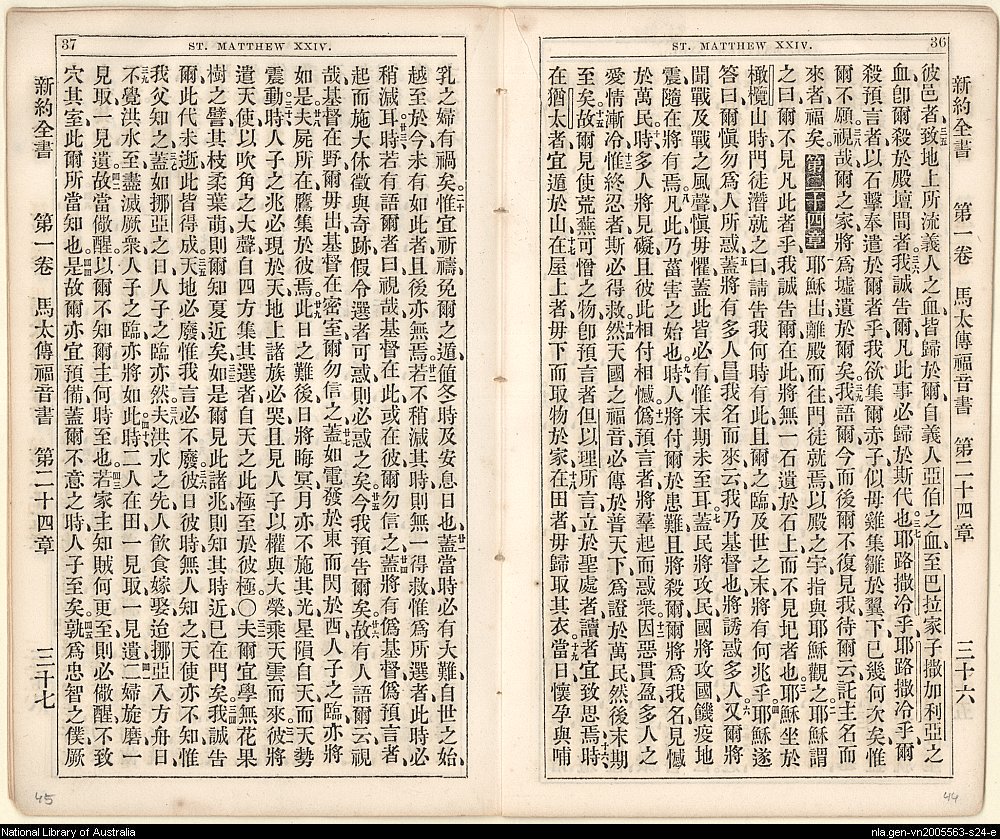 36
ST. MATTHEW XXIV.
新約全書 第一卷 馬太傳福音書 第二十四章 三十六
彼邑者、致地上所流義人之血、皆歸於爾、自義人亞伯之血、至巴拉家子撒加利亞之
血、卽爾殺於殿壇間者、我誠告爾、凡此事必歸於斯代也、耶路撒冷乎、耶路撒冷乎、爾
殺預言者、以石擊奉遣於爾者乎、我欲集爾赤子、似母雞集雛於翼下、已幾何次矣、惟
爾不願、視哉、爾之家將爲墟遺於爾矣、我語爾、今而後爾不復見我、待爾云、託主名而
來者福矣、第二十四章 耶穌出離殿而往、門徒就焉、以殿之宇指與耶穌觀之、耶穌謂
之曰、爾不見凡此者乎、我誠告爾、在此將無一石遺於石上而不見圮者也、耶穌坐於
橄欖山時、門徒潛就之曰、請告我何時有此、且爾之臨及世之末、將有何兆乎、耶穌遂
答曰、爾愼勿爲人所惑、蓋將有多人冒我名而來、云我乃基督也、將誘惑多人、又爾將
聞戰及戰之風聲、愼毋懼、蓋此皆必有、惟末期未至耳、蓋民將攻民、國將攻國、饑疫地
震、隨在將有焉、凡此乃菑害之始也、時人將付爾於患難、且將殺爾、爾將爲我名見憾
於萬民、時多人將見礙、且彼此相付相憾、僞預言者將羣起而惑衆、因惡貫盈、多人之
愛情漸冷、惟終忍者斯必得救、然天國之福音、必傳於普天下、爲證於萬民、然後末期
至矣、故爾見使荒蕪可憎之物、卽預言者但以理所言、立於聖處者、讀者宜致思焉、時
在猶太者、宜遁於山、在屋上者、毋下而取物於家、在田者、毋歸取其衣、當日懷孕與哺
44
37
ST. MATTHEW XXIV.
乳之婦有禍矣、惟宜祈禱、免爾之遁、値冬時及安息日也、蓋當時必有大難、自世之始、
越至於今、未有如此者、且後亦無焉、若不稍減其時、則無一得救、惟爲所選者、此時必
稍減耳、時若有語爾者曰、視哉、基督在此、或在彼、爾勿信之、蓋將有僞基督、僞預言者、
起而施大休徵與奇跡、假令選者可惑、則必惑之矣、今我預告爾矣、故有人語爾云、視
哉、基督在野、爾毋出、基督在密室、爾勿信之、蓋如電發於東而閃於西、人子之臨亦將
如是、夫屍所在、鷹集於彼焉、此日之難後、日將晦冥、月亦不施其光、星隕自天、而天勢
震動、時人子之兆必現於天、地上諸族必哭、且見人子以權與大榮、乘天雲而來、彼將
遣天使、以吹角之大聲、自四方集其選者、自天之此極至於彼極、〇夫爾宜學無花果
樹之譬、其枝柔葉萌、則爾知夏近矣、如是爾見此諸兆、則知其時近、已在門矣、我誠告
爾、此代未逝、此皆得成、天地必廢、惟我言必不廢、彼日彼時、無人知之、天使亦不知、惟
我父知之、蓋如挪亞之日、人子之臨亦然、夫洪水之先、人飮食嫁娶、迨挪亞入方舟日、
不覺洪水至、盡滅厥衆、人子之臨、亦將如此、時二人在田、一見取、一見遺、二婦旋磨、一
見取、一見遺、故當儆醒、以爾不知爾主何時至也、若家主知賊何更至、則必儆醒、不致
穴其室、此爾所當知也、是故爾亦宜預備、蓋爾不意之時、人子至矣、孰爲忠智之僕、厥
新約全書 第一卷 馬太傳福音書 第二十四章 三十七
45
National Library of Australia
nla.gen-vn2005563-s24-e